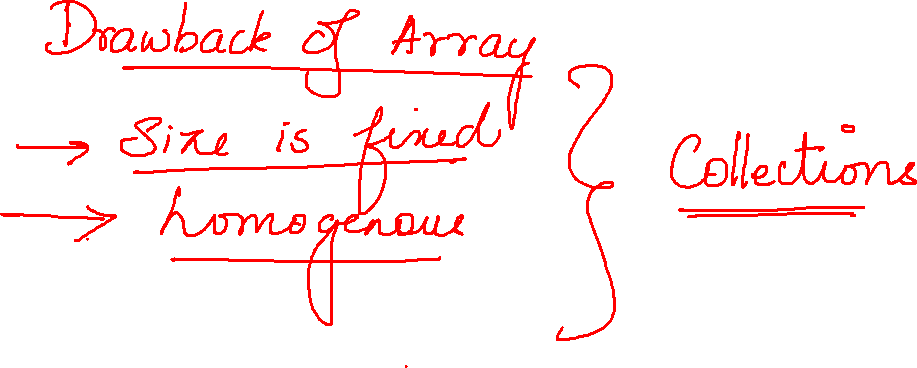 Drawback of Array
→ Size is fixed
→ homogenous
Collections